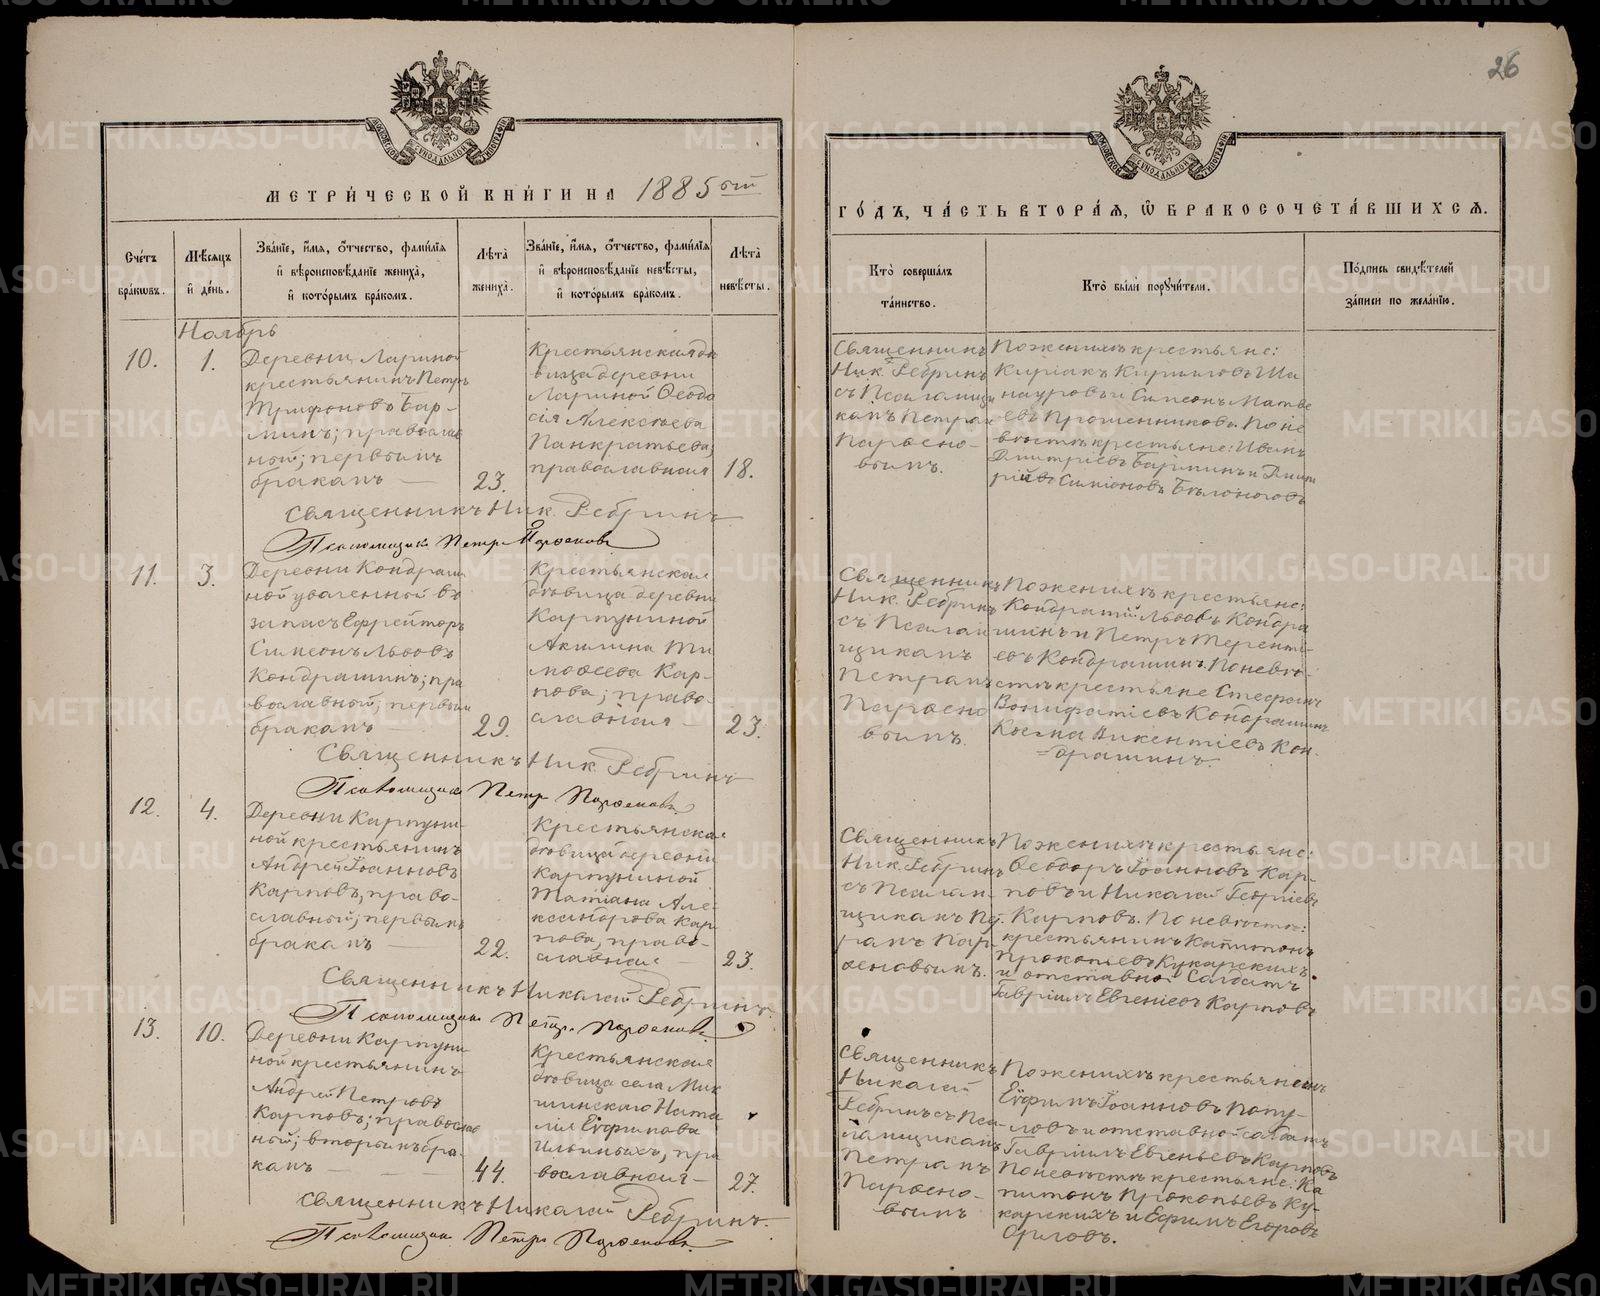 26
МЕТРИ́ЧЕСКОЙ КНИ́ГИ НА 1885 ый
ГО́ДЪ, ЧА́СТЬ ВТОРА́Я, Ѿ БРАКОСОЧЕТА́ВШИХСЯ.
Сче́тъ бра́ковъ.
Мѣ́сяцъ и́ де́нь.
Зва́нїе, и́мя, о́тчество, фами́лїя и́ вѣроисповѣ́данїе жениха̀, и́ кото́рымъ бра́комъ.
Лѣта̀ жениха̀.
Зва́нїе, и́мя, о́тчество, фами́лїя и́ вѣроисповѣ́данїе невѣ́сты, и́ кото́рымъ бра́комъ.
Лѣта̀ невѣ́сты.
Кто̀ соверша́лъ та́инство.
Кто̀ бы́ли пору́чители.
По́дпись свидѣ́телей за́писи по жела́нїю.
Ноябрь
10.
1.
Деревни Лариной
крестьянинъ Петръ
Трифоновъ Бар-
минъ; православ
ный; первымъ
бракомъ
23.
Крестьянская дѣ
вица деревни
Лариной Ѳеодо
сія Алексѣева
Панкратьева;
православная
18.
Священникъ
Ник. Ребринъ
съ Псаломщи
комъ Петро
Парѳено-
вымъ.
По женихѣ крестьяне:
Киріакъ Кириловъ Ша
науровъ и Симеонъ Матве
евъ Прошенниковъ. По не
вѣстѣ крестьяне: Иванъ
Дмитріевъ Барминъ и Дмит
рій Симіоновъ Бѣлоноговъ
Священникъ Ник. Ребринъ
Псаломщикъ Петръ Парѳеновъ
11.
3.
Деревни Кондраши
ной уволенный въ
запасъ Ефрейторъ
Симеонъ Львовъ
Кондрашинъ; пра
вославный; первым
бракомъ
29.
Крестьянская
дѣвица деревни
Карпушиной
Акилина Ти
моѳеева Кар-
пова; право-
славная
23.
Священникъ
Ник. Ребринъ
съ Псалом
щикомъ
Петромъ
Парѳено
вымъ.
По женихѣ крестьяне:
Кондратій Львовъ Кондра
шинъ и Петръ Теренті-
евъ Кондрашинъ. По невѣ-
стѣ крестьяне Стефанъ
Вонифатіевъ Кондрашинъ
Косма Викентіевъ Кон-
драшинъ.
Священникъ Ник. Ребринъ
Псаломщикъ Петръ Парѳеновъ
12.
4.
Деревни Карпуши-
ной крестьянинъ
Андрей Іоанновъ
Карповъ, право-
славный; первымъ
бракомъ
22.
Крестьянская
дѣвица деревни
Карпушиной
Татіана Але-
ксандрова Кар
пова, право-
славная
23.
Священникъ
Ник. Ребринъ
съ Псалом-
щикомъ Пе
ромъ Пар-
ѳеновымъ.
По женихѣ крестьяне:
Ѳеодоръ Іоанновъ Кар-
повъ и Николай Георгіевъ
Карповъ. По невѣстѣ:
крестьянинъ Капитонъ
Прокопьевъ Кукарскихъ
и отставной Солдатъ
Гавріилъ Евгеніевъ Карповъ
Священникъ Николай Ребринъ.
Псаломщикъ Петръ Парѳеновъ
13.
10.
Деревни Карпуши
ной крестьянинъ
Андрей Петровъ
Карповъ; православ
ный; вторымъ бра-
комъ
44.
Крестьянская
дѣвица села Мик
шинскаго Ната
лія Евфимова
Ильиныхъ, пра
вославная
27.
Священникъ
Николай
Ребринъ съ Пса-
ломщикомъ
Петромъ
Парѳено-
вымъ
По женихѣ крестьянинъ
Евфимъ Іоанновъ Попу-
ловъ и отставной солдатъ
Гавріилъ Евгеньевъ Карповъ
По невѣстѣ крестьяне: Ка
питонъ Прокопьевъ Ку-
карскихъ и Ефимъ Егоровъ
Орловъ.
Священникъ Николай Ребринъ.
Псаломщикъ Петръ Парѳеновъ.
METRIKI.GASO-URAL.RU